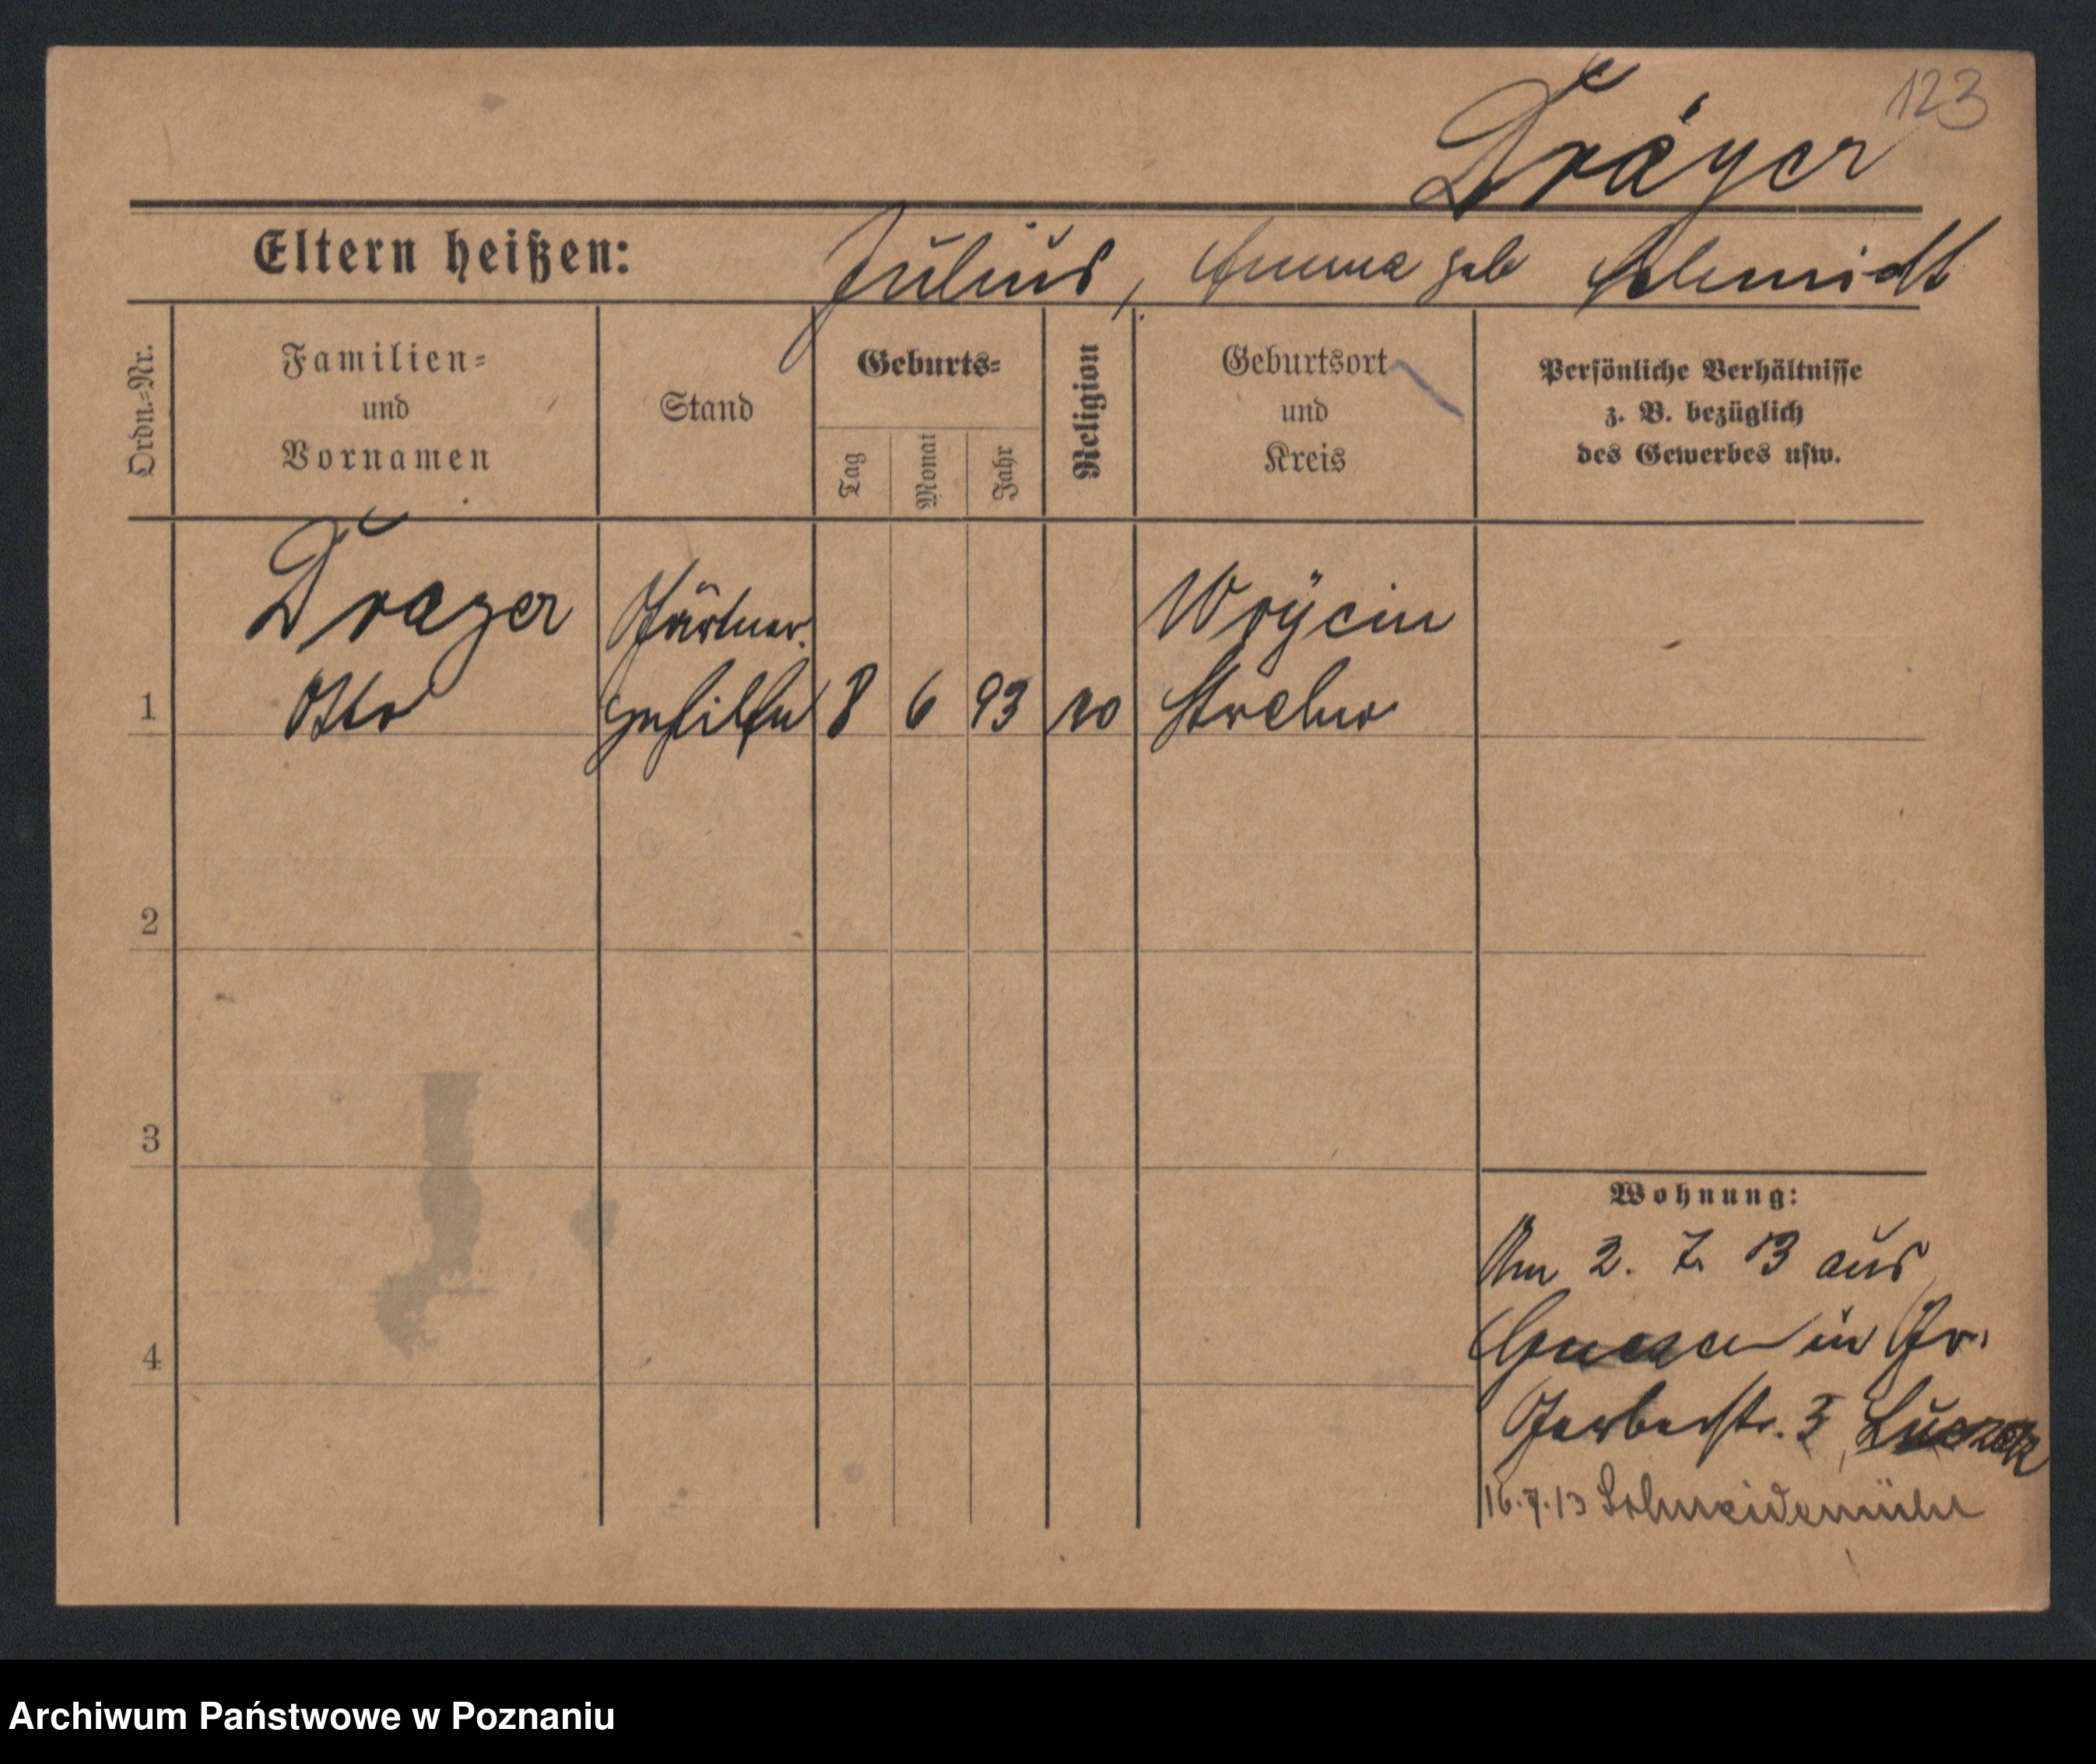 123
Dräger
Eltern heißen: Julius, Emma geb Schmidt
Ordn.-Nr.
Familien-
und
Vornamen
Stand
Geburts-
Tag
Monat
Jahr
Religion
Geburtsort
und
Kreis
Persönliche Verhältnisse
z. B. bezüglich
des Gewerbes usw.
Dräger Gärtner
1 Otto gehilfe 8 6 93 Strelno
2
3
4
Wohnung:
Am 2. 7. 13 aus
Gnesen in Gr.
Gerberstr. 3,
16.7.13 Schneidemühl
Archiwum Państwowe w Poznaniu